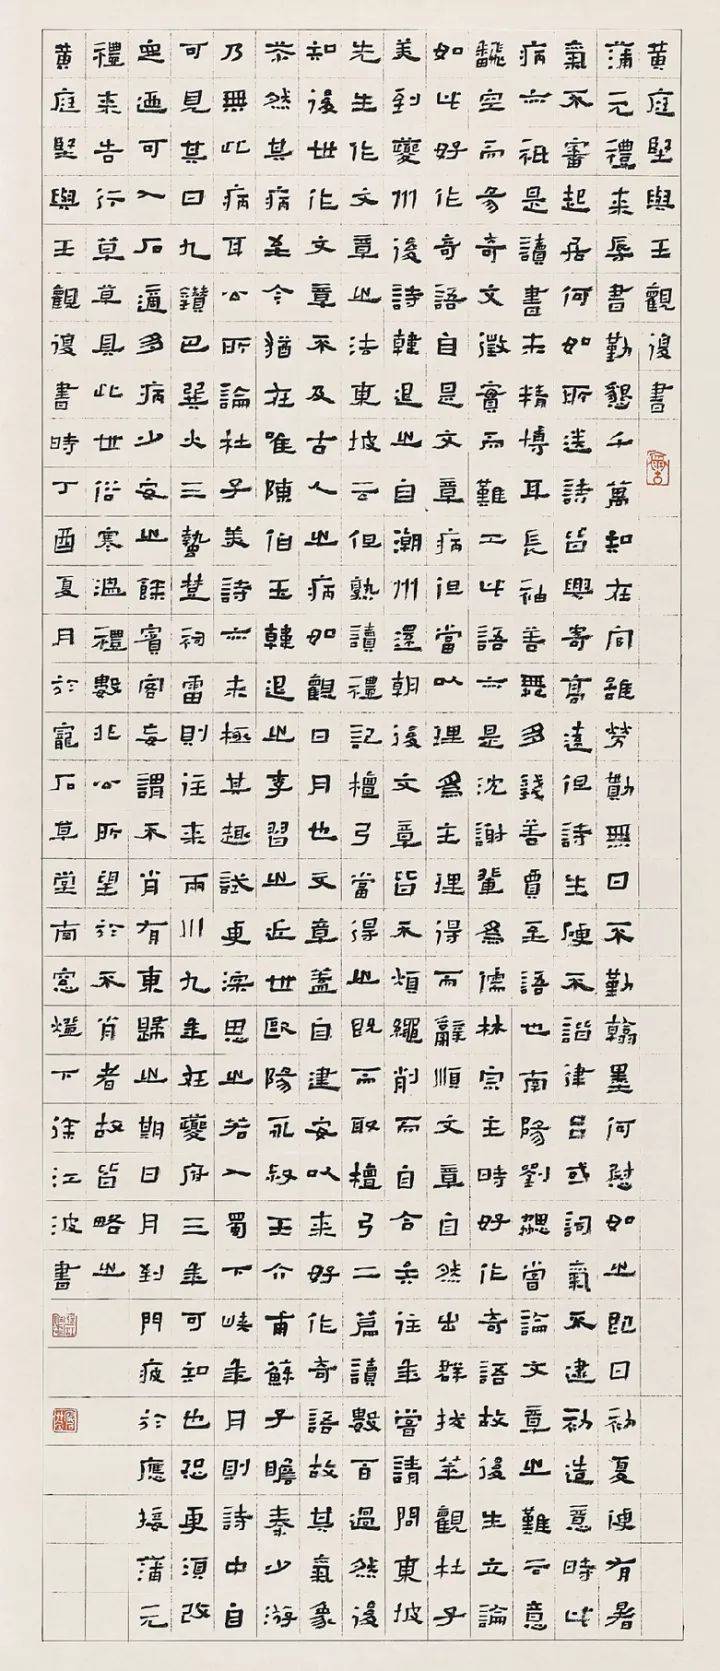 黃庭堅與王觀復書
蒲元禮來辱書勤懇千萬知在向雖勞勩無日不勤翰墨何慰如之即日初夏便有暑
氣不審起居何如所送詩皆興寄高遠但詩生硬不諧律呂或詞氣不逮初造意時此
病亦祗是讀書未精博耳長袖善舞多錢善賈至語也南陽劉勰嘗論文章之難云意
飜空而易奇文徵實而難工此語亦是沈謝輩為儒林宗主時好作奇語故後生立論
如此好作奇語自是文章病但當以理為主理得而辭順文章自然出群拔萃觀杜子
美到夔州後詩韓退之自潮州還朝後文章皆不煩繩削而自合矣往年嘗請問東坡
先生作文章之法東坡云但熟讀禮記檀弓當得之既而取檀弓二篇讀數百過然後
知後世作文章不及古人之病如觀日月也文章蓋自建安以來好作奇語故其氣象
苶然其病至今猶在唯陳伯玉韓退之李習之近世歐陽永叔王介甫蘇子瞻秦少游
乃無此病耳公所論杜子美詩亦未極其趣試更深思之若入蜀下峽年月則詩中自
可見其曰九鑽巴巽火三蟄楚祠雷則往來兩川九年在夔府三年可知也恐更須改
定迺可入石適多病少安之餘賓客妄謂不肖有東歸之期日月到門疲於應接蒲元
禮來告行草草具此世俗寒溫禮數非公所望於不肖者故皆略之
黃庭堅與王觀復書時丁酉夏月於寵石草堂南窗燈下徐江波書